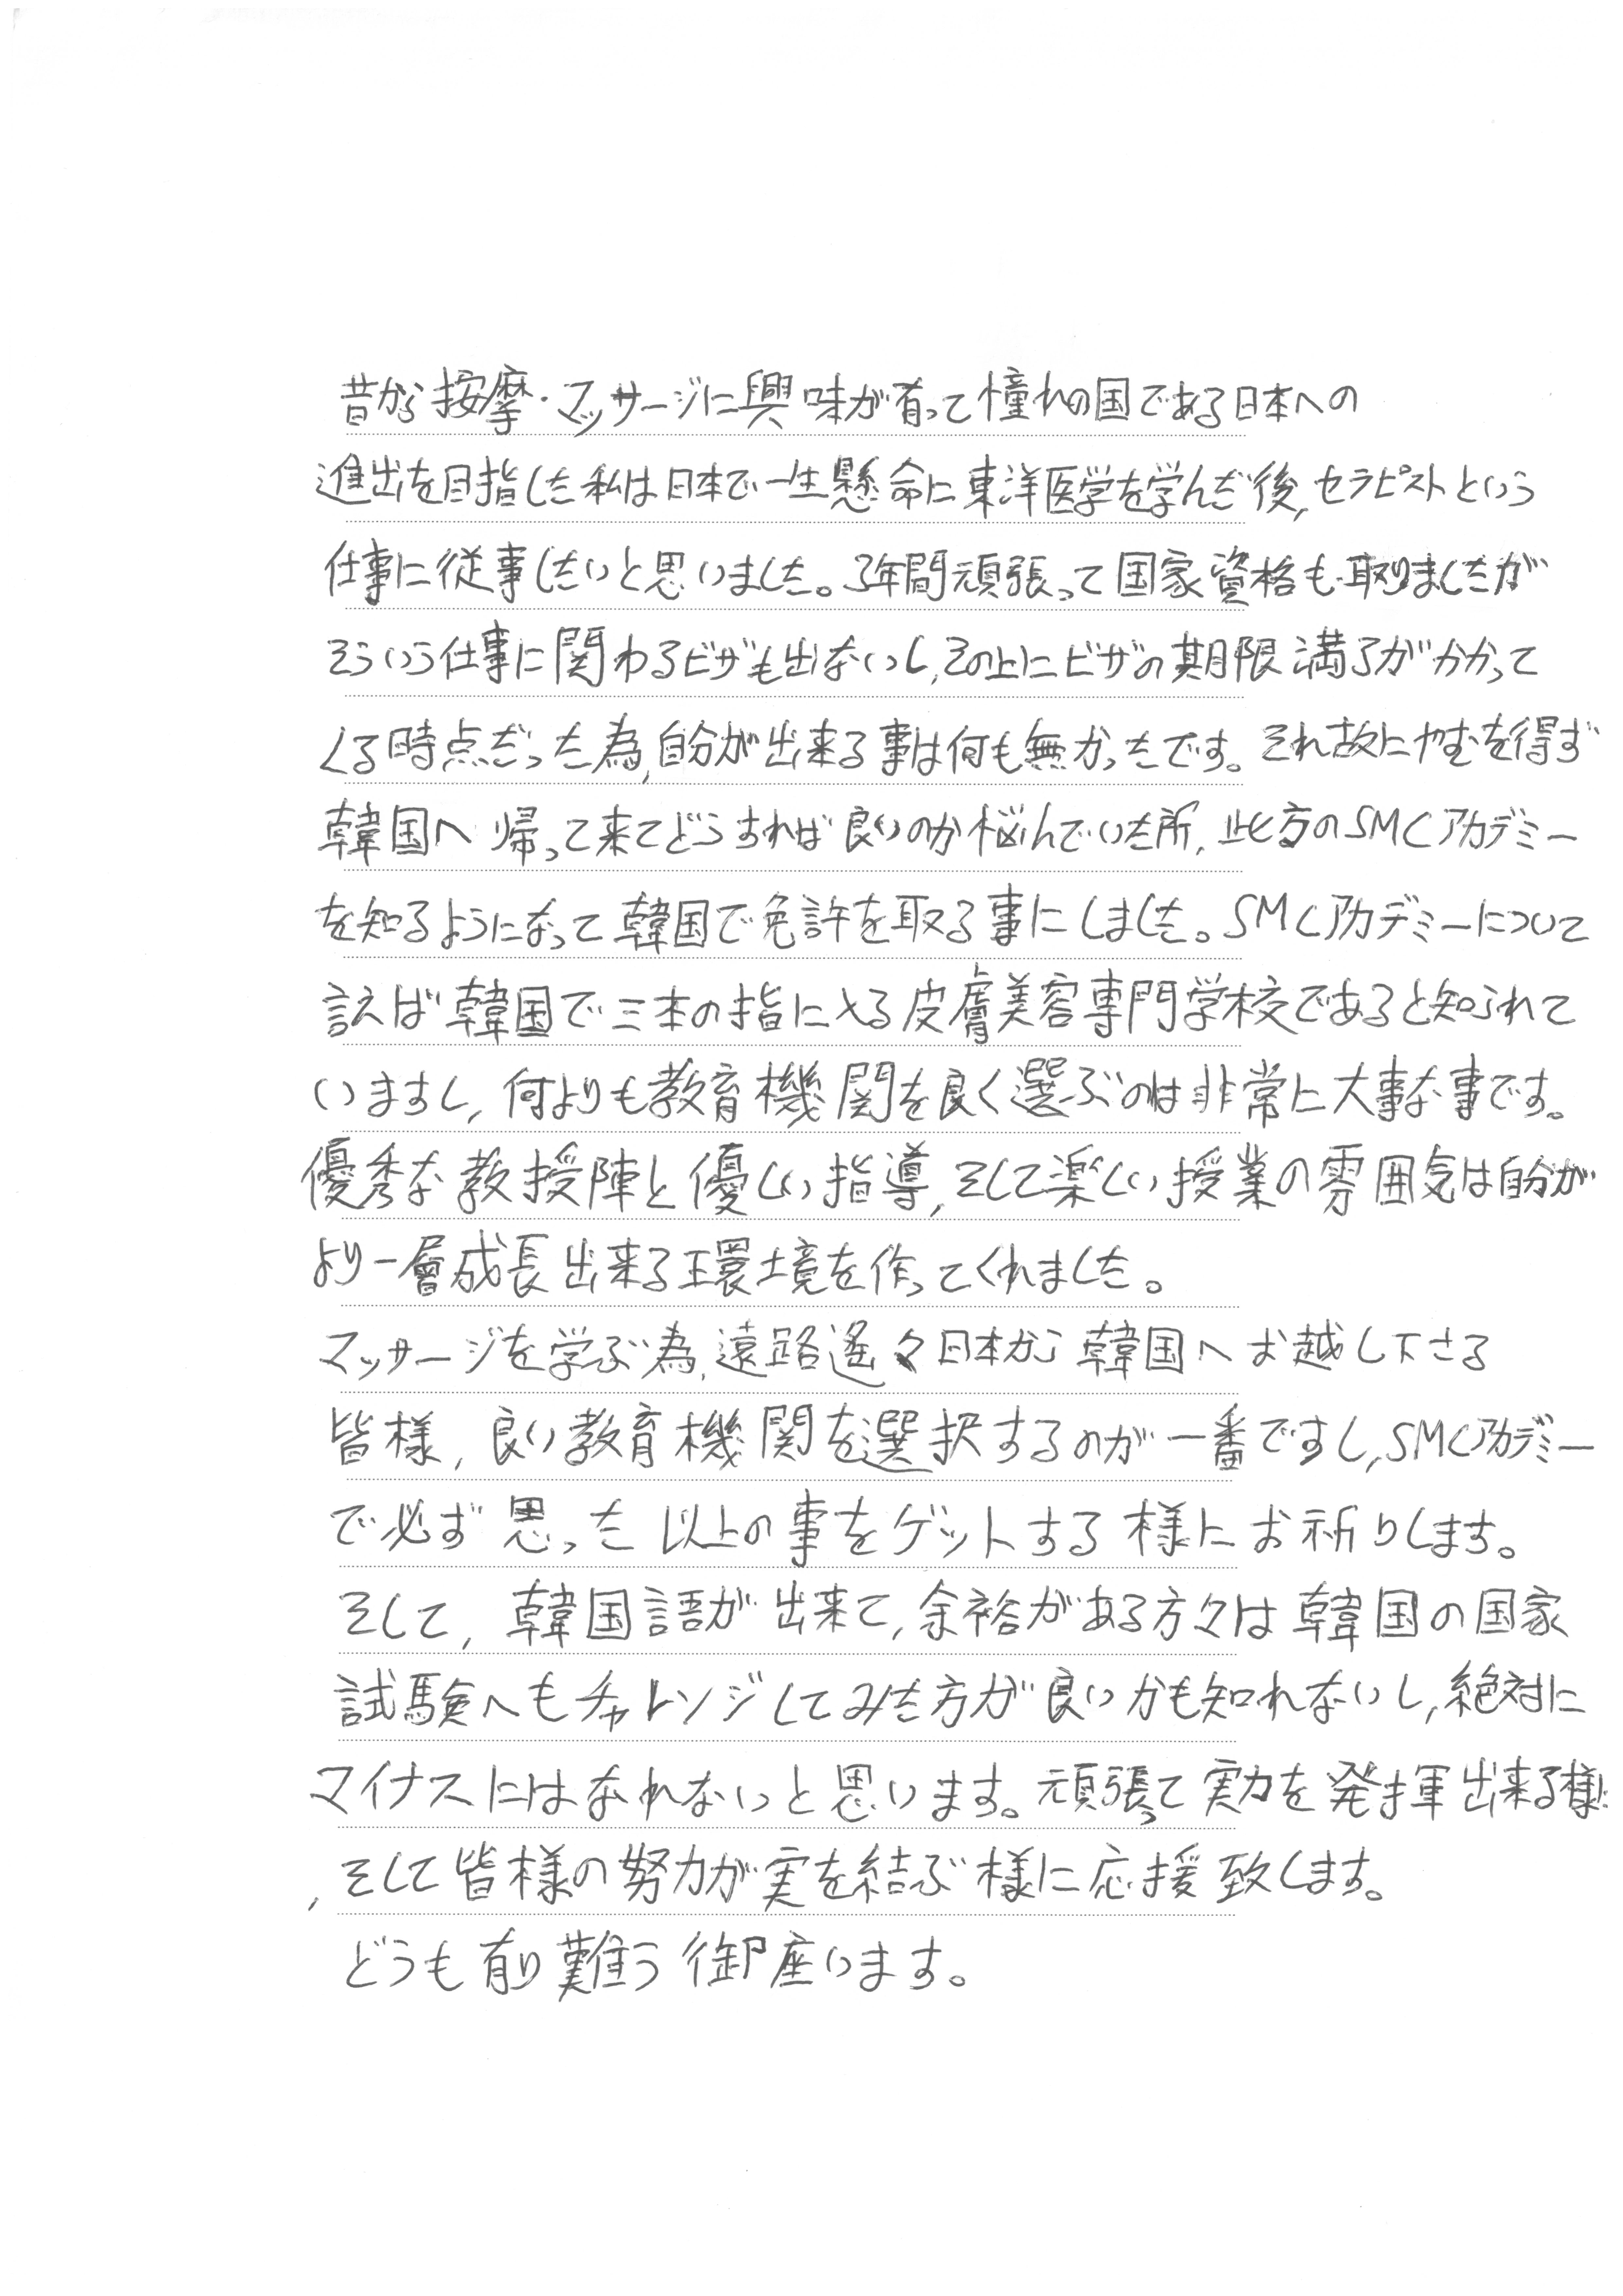 昔から按摩・マッサージに興味が有って憧れの国である日本への
進出を目指した私は日本で一生懸命に東洋医学を学んだ後,セラピストという
仕事に従事したいと思いました。3年間頑張って国家資格も取りましたが
そういう仕事に関わるビザも出ないし,その上にビザの期限満了がかかって
くる時点だった為,自分が出来る事は何も無かったです。それ故にやむを得ず
韓国へ帰って来てどうすれば良いのか悩んでいた所,此方のSMCアカデミー
を知るようになって韓国で免許を取る事にしました。SMCアカデミーについて
言えば韓国で三本の指に入る皮膚美容専門学校であると知られて
いますし,何よりも教育機関を良く選ぶのは非常に大事な事です。
優秀な教授陣と優しい指導,そして楽しい授業の雰囲気は自分が
より一層成長出来る環境を作ってくれました。
マッサージを学ぶ為,遠路遙々日本から韓国へお越し下さる
皆様,良い教育機関を選択するのが一番ですし,SMCアカデミー
で必ず思った以上の事をゲットする様にお祈りします。
そして,韓国語が出来て,余裕がある方々は韓国の国家
試験へもチャレンジしてみた方が良いかも知れないし,絶対に
マイナスにはなれないと思います。頑張って実力を発揮出来る様に
,そして皆様の努力が実を結ぶ様に応援致します。
どうも有り難う御座います。